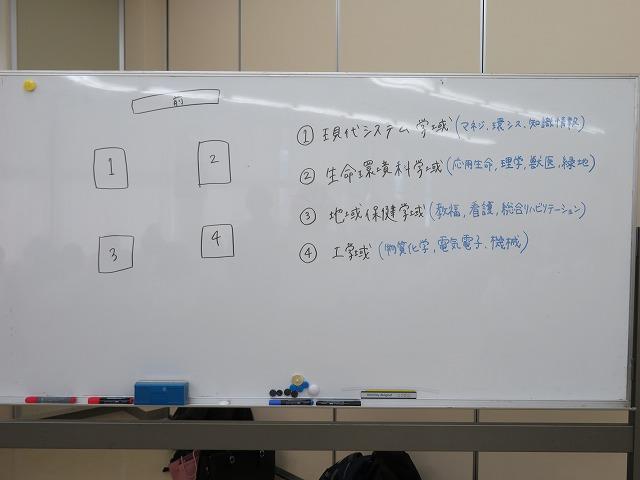 前
1
2
3
4
① 現代システム学域(マネジ、環シス、知識情報)
② 生命環境科学域(応用生命、理学、獣医、緑地)
③ 地域保健学域(教福、看護、総合リハビリテーション)
④ 工学域(物質化学、電気電子、機械)